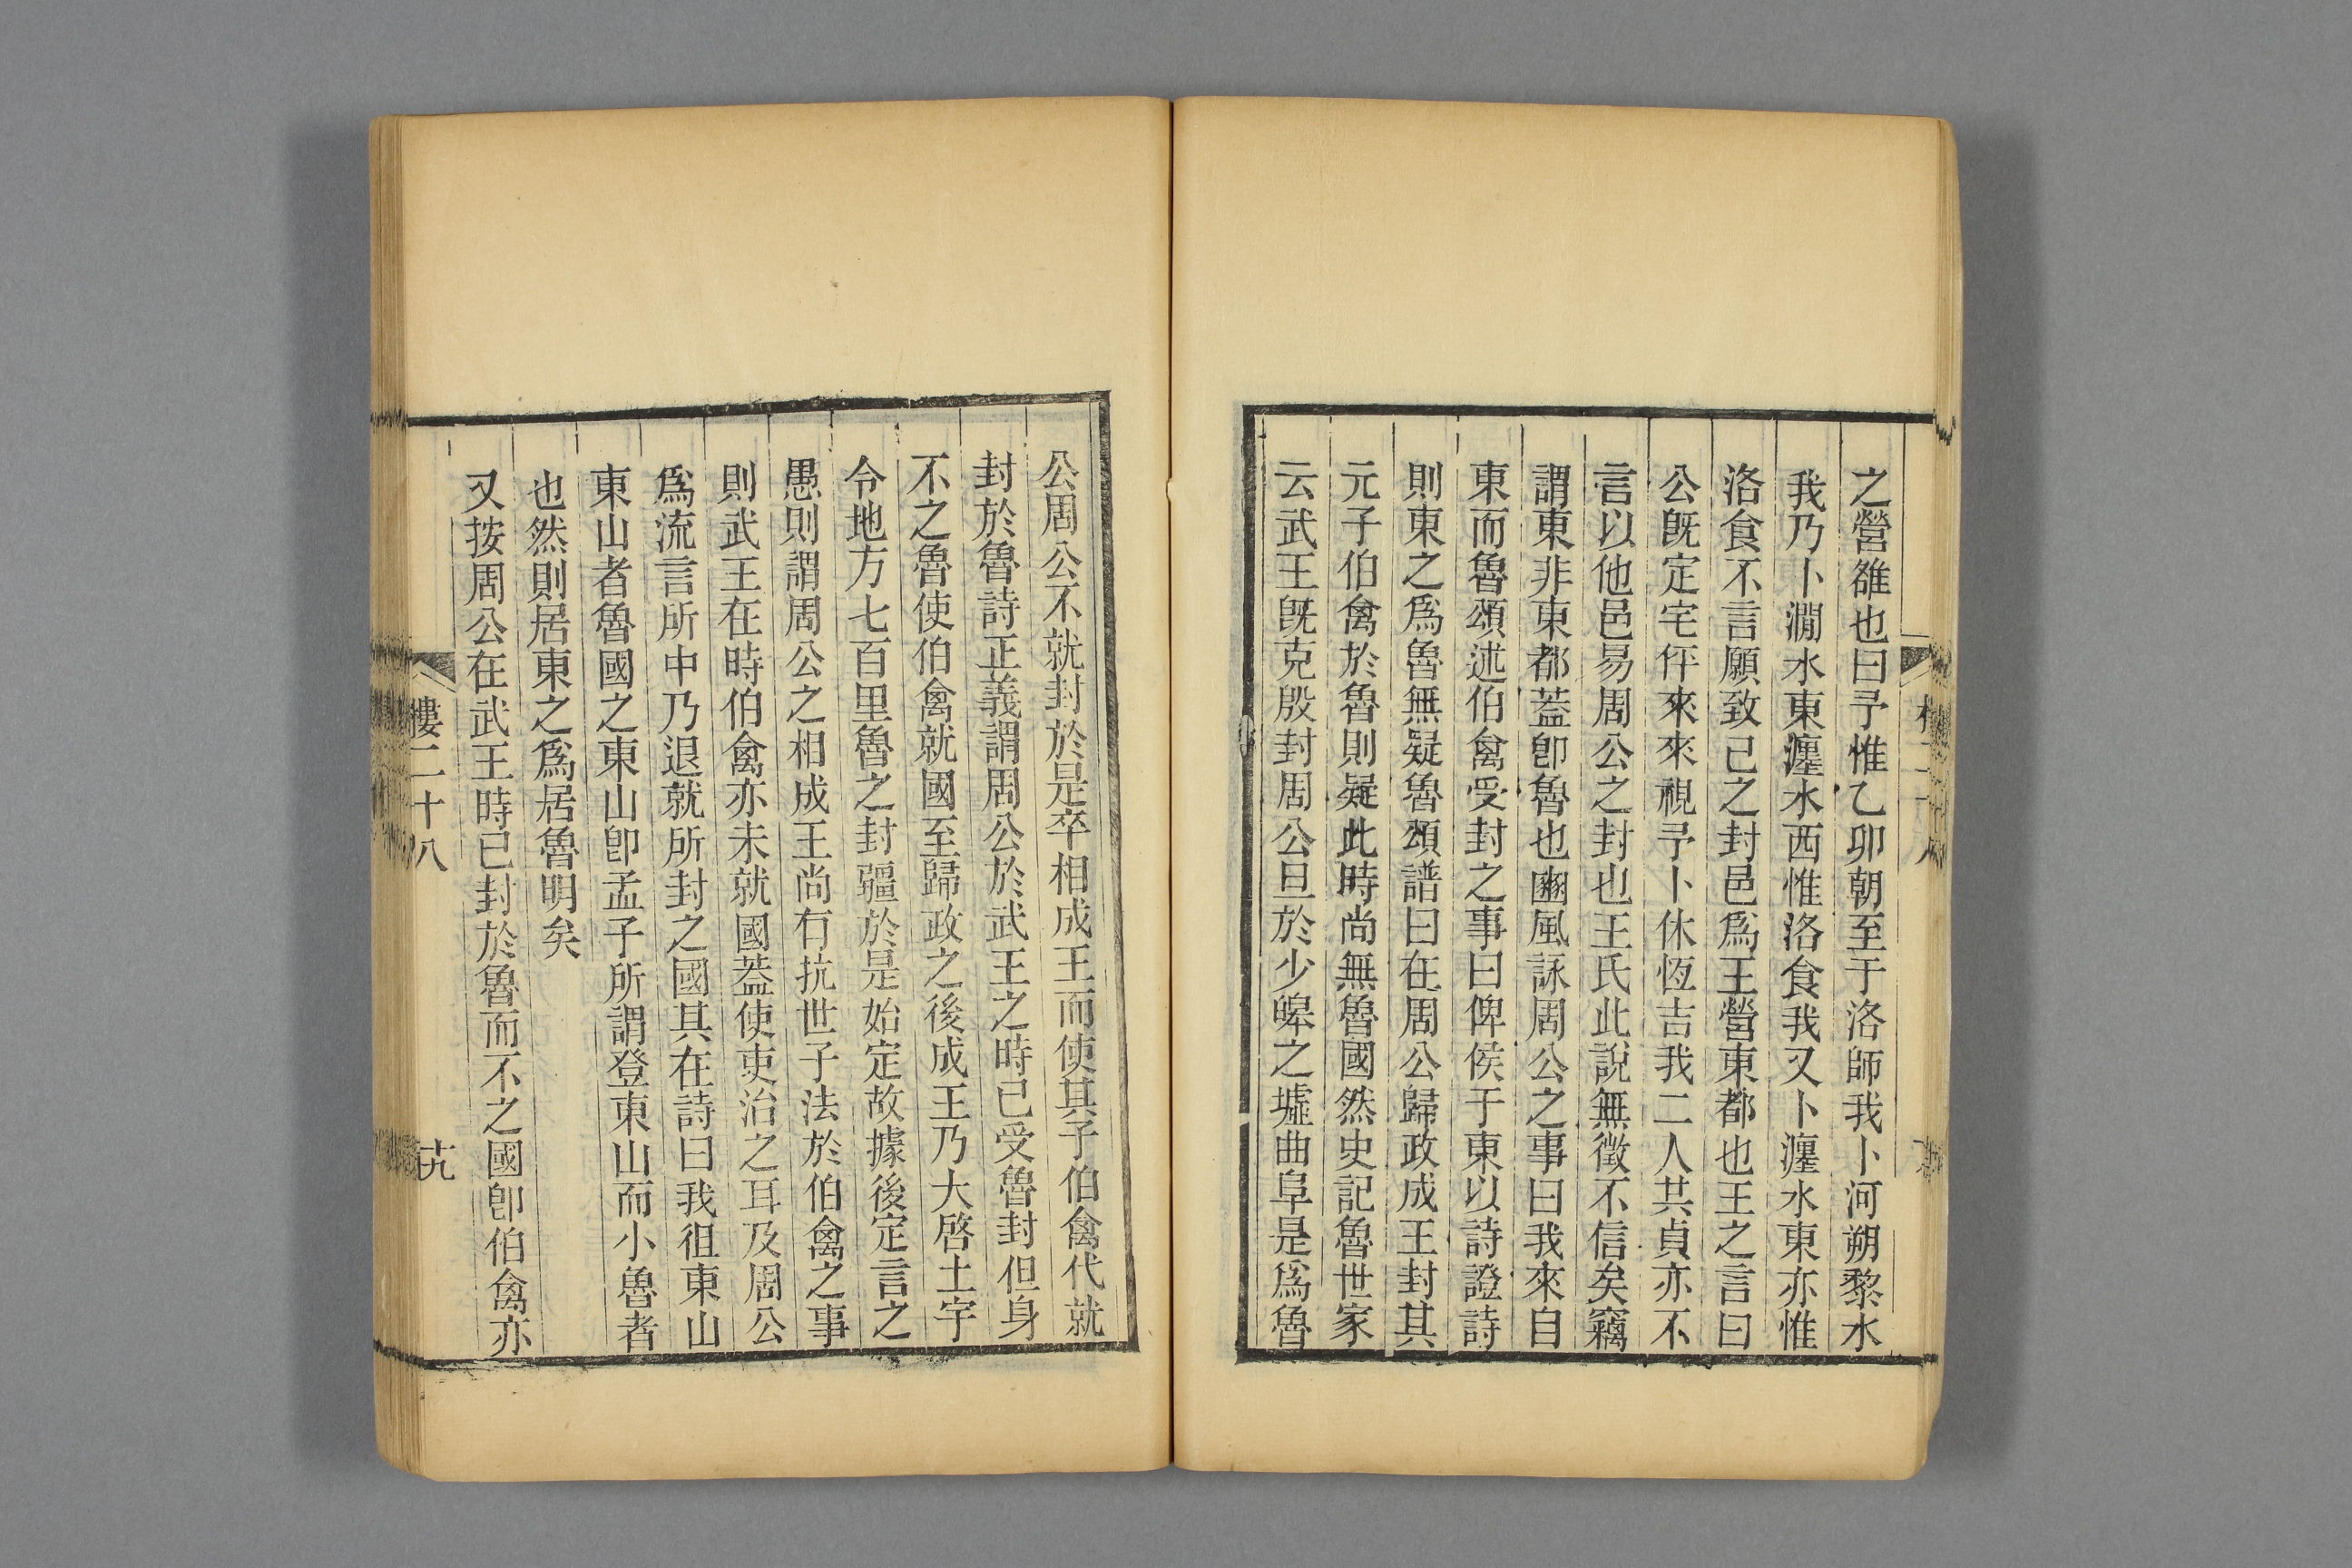 之營雒也曰予惟乙卯朝至于洛師我卜河朔黎水
我乃卜澗水東瀍水西惟洛食我又卜瀍水東亦惟
洛食不言願致己之封邑爲王營東都也王之言曰
公旣定宅伻來來視予卜休恆吉我二人共貞亦不
言以他邑易周公之封也王氏此說無徵不信矣竊
謂東非東都蓋卽魯也豳風詠周公之事曰我來自
東而魯頌述伯禽受封之事曰俾侯于東以詩證詩
則東之爲魯無疑魯頌譜曰在周公歸政成王封其
元子伯禽於魯則疑此時尚無魯國然史記魯世家
云武王旣克殷封周公旦於少皞之墟曲阜是爲魯
公周公不就封於是卒相成王而使其子伯禽代就
封於魯詩正義謂周公於武王之時已受魯封但身
不之魯使伯禽就國至歸政之後成王乃大啓土宇
令地方七百里魯之封疆於是始定故據後定言之
愚則謂周公之相成王尚有抗世子法於伯禽之事
則武王在時伯禽亦未就國蓋使吏治之耳及周公
爲流言所中乃退就所封之國其在詩曰我徂東山
東山者魯國之東山卽孟子所謂登東山而小魯者
也然則居東之爲居魯明矣
又按周公在武王時已封於魯而不之國卽伯禽亦
樓二十八
十九